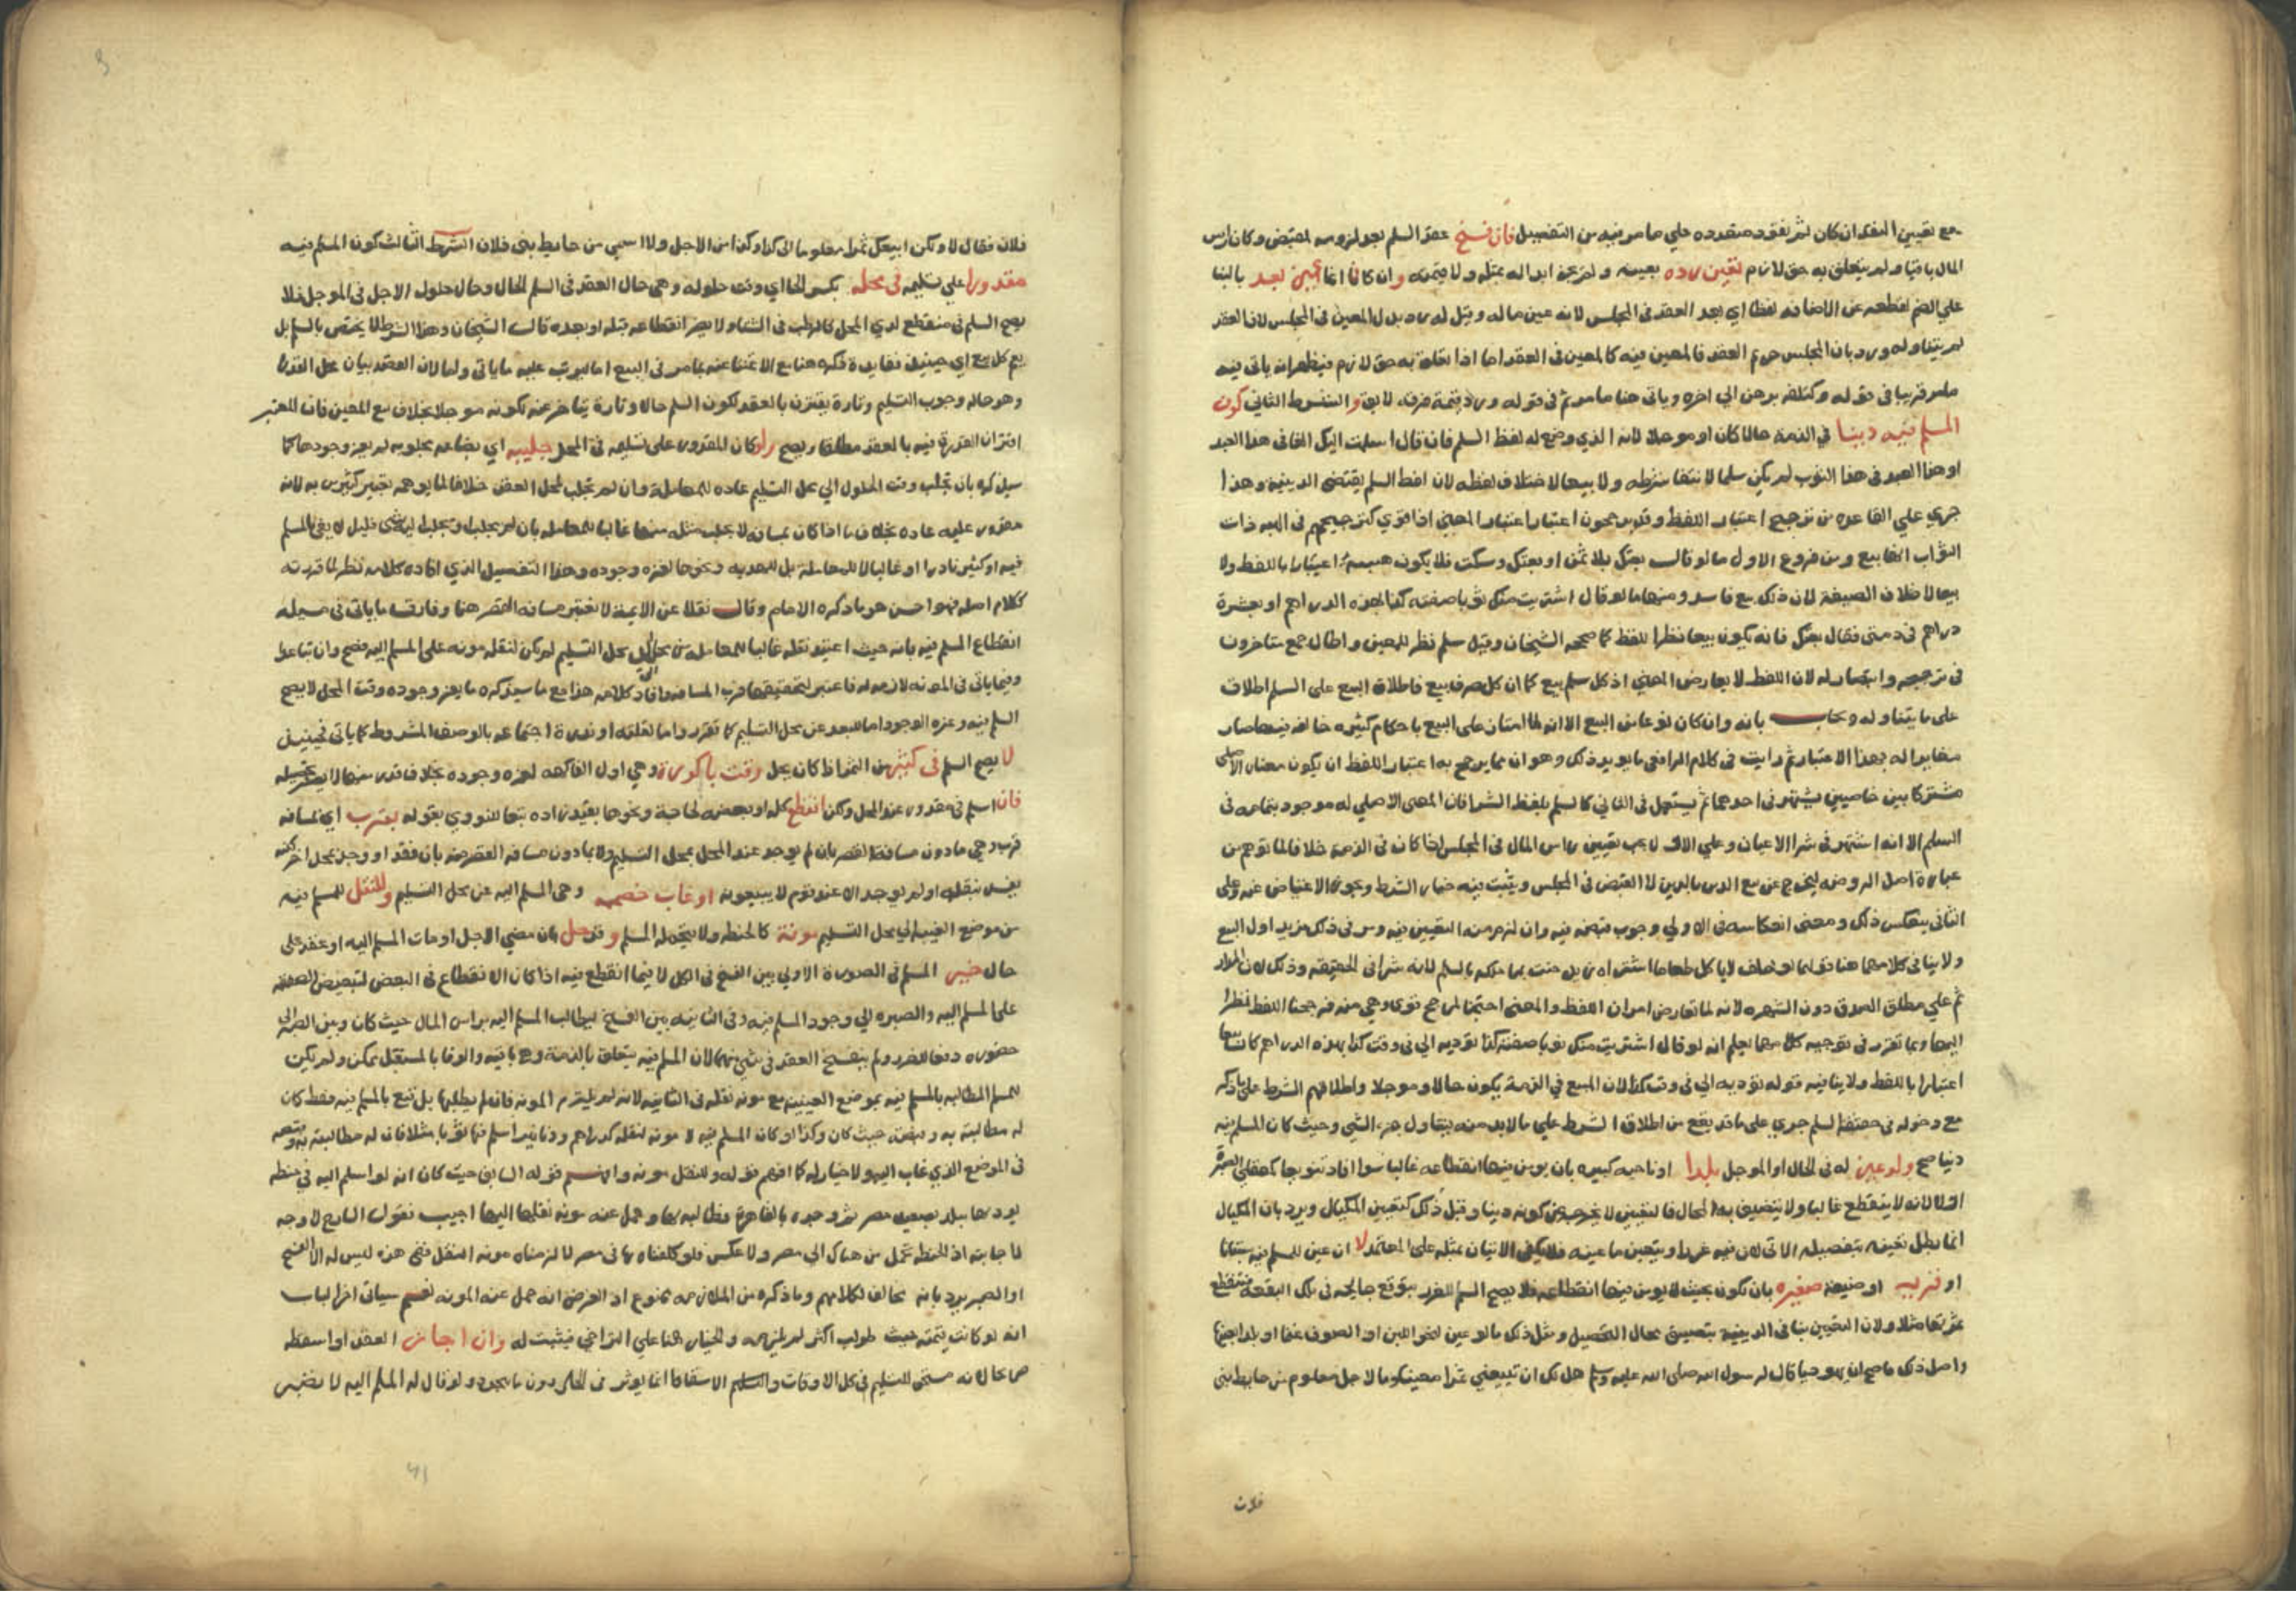 مع تعيين النقد ان كان ثم نقود متعدده علي ما مر فيه من التفصيل فان فسخ عقد السلم بعد لزومه لمقتض وكان راس
المال باقيا ولم يتعلق به حق لازم تعين رده بعينه ولم يجز ابداله بمثله ولا قيمته وان كان انما عين بعد بالبنا
علي الضم لقطعه عن الاضافه لفظا اي بعد العقد في المجلس لانه عين ماله وقيل له رد بدل المعين في المجلس لان العقد
لم يتناوله ورد بان المجلس حريم العقد فالمعين فيه كالمعين في العقد اما اذا تعلق به حق لازم فيظهر انه ياتي فيه
ما مر قريبا في قوله وكتلفه برهن الي اخره وياتي هنا ما مر ثم في قوله ورد قيمة لابق والشرط الثاني كون
المسلم فيه دينا في الذمة حالا كان او موجلا لانه الذي وضع له لفظ السلم فان قال اسلمت اليك الفا في هذا العبد
او هذا العبد في هذا الثوب لم يكن سلما لانتفا شرطه ولا بيعا لاختلاف لفظه لان لفظ السلم يقتضي الدينية وهذا
جري علي القاعده من ترجيح اعتبار اللفظ وقد يرجحون اعتبار المعني اذا قوي كترجيحهم في الهبه ذات
الثواب انها بيع ومن فروع الاول ما لو قال بعتك بلا ثمن او بعتك وسكت فلا يكون هبة اعتبارا باللفظ ولا
بيعا لاختلاف الصيغة لان ذلك بيع فاسد ومنها ما لو قال اشتريت منك ثوبا صفته كذا بهذه الدراهم او بعشرة
دراهم في ذمتي فقال بعتك فانه يكون بيعا نظرا للفظ كما صححه الشيخان وقيل سلم نظرا للمعني واطال جمع متاخرون
في ترجيحه وانتصار له لان اللفظ لا يعارض المعني اذ كل سلم بيع كما ان كل صرف بيع فاطلاق البيع علي السلم اطلاق
علي ما يتناوله ويجاب بانه وان كان نوعا من البيع الا انه لما امتاز علي البيع باحكام كثيره خالفه فيها صار
مغايرا له بهذا الاعتبار ثم رايت في كلام الرافعي ما يويد ذلك وهو ان مما يرجح به اعتبار اللفظ ان يكون معناه الاصلي
مشتركا بين خاصين يشتهر في احدهما ثم يستعمل في الثاني كالسلم بلفظ الشرا فان المعني الاصلي له موجود بتمامه في
السلم الا انه اشتهر في شرا الاعيان وعلي الاول يجب تعيين راس المال في المجلس اذا كان في الذمة خلافا لما توهم من
عبارة اصل الروضه ليخرج عن بيع الدين بالدين لا القبض في المجلس ويثبت فيه خيار الشرط ويجوز الاعتياض عنه وعلي
الثاني ينعكس ذلك ومعني انعكاسه في الاولي وجوب قبضه فيه وان لزم منه التعيين فيه ومر في ذلك مزيد اول البيع
ولا ينافي كلامهما هنا قولهما لو حلف لا ياكل طعاما اشتراه زيد حنث بما ملكه بالسلم لانه شرا في الحقيقه وذلك لان المدار
ثم علي مطلق الصدق دون الشهره لانه لما تعارض امران اللفظ والمعني احتجنا لمرجح قوي وهي منه فرجحنا اللفظ نظرا
اليها وبما تقرر في توجيه كلامهما يعلم انه لو قال اشتريت منك ثوبا صفته كذا توديه الي في وقت كذا بهذه الدراهم كان بيعا
اعتبارا باللفظ ولا ينافيه قوله توديه الي في وقت كذا لان المبيع في الذمة يكون حالا وموجلا واطلاقهم الشرط علي ما ذكر
مع دخوله في حقيقة السلم جري علي ما قد يقع من اطلاق الشرط علي ما لابد منه يتناول جزء الشي وحيث كان المسلم فيه
دينا صح ولو عين له في الحال او الموجل بلدا او ناحيه كبيره بان يومن فيها انقطاعه غالبا سوا افاد تنويعا كمعقلي البصرة
اولا لانه لا ينقطع غالبا ولا يتضيق به المحال فالتعيين لا يخرجه عن كونه دينا وقيل ذلك كتعيين المكيال ويرد بان المكيال
انما بطل تعيينه بتفصيله الاتي لان فيه غررا ويتعين ما عينه فلا يكفي الاتيان بمثله علي المعتمد لا ان عين للمسلم فيه بستانا
او قريه او ضيعه صغيره بان تكون بحيث لا يومن فيها انقطاعه فلا يصح السلم للغرر بتوقع جايحه في تلك البقعة فينقطع
ثمرتها مثلا ولان التعيين ينافي الدينية بتضييق محال التحصيل ومثل ذلك ما لو عين لنحو اللبن او الصوف غنما او بلد الجبن
واصل ذلك ما صح ان يهوديا قال لرسول الله صلي الله عليه وسلم هل لك ان تبيعني تمرا معينا معلوما لاجل معلوم من حايط بني
فلان
فلان فقال لا ولكن ابيعك تمرا معلوما الي كذا وكذا من الاجل ولا اسمي من حايط بني فلان الشرط الثالث كون المسلم فيه
مقدورا علي تسليمه في محله بكسر الحا اي وقت حلوله وهي حال العقد في السلم الحال وحال حلول الاجل في الموجل فلا
يصح السلم في منقطع لدي المحل كالرطب في الشتا ولا يضر انقطاعه قبله او بعده قال الشيخان وهذا الشرط لا يختص بالسلم بل
يعم كل بيع اي حينيذ ففايدة ذكره هنا مع الاغتنا عنه بما مر في البيع اما ليرتب عليه ما ياتي واما لان القصد بيان محل القدرة
وهو حالة وجوب التسليم وتارة يقترن بالعقد لكون السلم حالا وتارة يتاخر عنه لكونه موجلا بخلاف بيع المعين فان المعتبر
اقتران القدرة فيه بالعقد مطلقا ويصح ولو كان المقدور علي تسليمه في المحل جليبه اي بضاعه مجلوبه لم يعز وجودها كما
سيذكره بان تجلب وقت الحلول الي محل التسليم عاده للمعاملة وان لم تجلب لمحل العقد خلافا لما يوهمه تعبير كثيرين به لانه
مقدور عليه عاده بخلاف ما اذا كان بمسافه لا يجلب مثله منها غالبا للمعامله بان لم يجلب او يجلب قليل لا يفي بالمسلم
فيه او كثير نادرا او غالبا لا للمعاملة بل للهديه ونحوها لعزه وجوده وهذا التفصيل الذي افاده كلامه نظرا لما قدرته
كلام اصله فهو احسن هو ما ذكره الامام وقال نقلا عن الايمة لا تعتبر مسافه القصر هنا وفارق ما ياتي في مسيله
انقطاع المسلم فيه بانه حيث اعتيد نقله غالبا للمعاملة من محل الي محل التسليم لم يكن لنقله مونه علي المسلم اليه فصح وان تباعدا
وفيما ياتي في المونه لازمه له فاعتبر لتخفيفها قرب المسافه وافاد كلامه هذا مع ما سيذكره ما يعز وجوده وقت المحل لا يصح
السلم فيه وعزه الوجود اما للبعد عن محل التسليم كما تقرر واما لقلته او ندرة اجتماعه بالوصف المشروط كما ياتي فحينيذ
لا يصح السلم في كثير من الثمر اذا كان يحل وقت باكورة وهي اول الفاكهه لعزه وجوده بخلاف قدر منها لا يعسر تحصيله
فان اسلم في مقدور عند المحل ولكن انقطع كله او بعضه لجاحة ونحوها بقيد زاده تبعا للنووي بقوله بقرب اي لمسافه
قرب وهي ما دون مسافة القصر بان لم يوجد عند المحل بمحل التسليم ولا بما دون مسافه القصر منه بان فقد او وجد بمحل اخر لكنه
يفسد بنقله او لم يوجد الا عند قوم لا يبيعونه او غاب خصمه وهي المسلم اليه عن محل التسليم وللنقل للمسلم فيه
من موضع الغيبه الي محل التسليم مونة كالحنطه ولا يتحملها المسلم وقد حل بان مضي الاجل او مات المسلم اليه او عقد علي
حال خير المسلم في الصورة الاولي بين الفسخ في الكل لا فيما انقطع فيه اذا كان الانقطاع في البعض لتبعيض الصفقه
علي المسلم اليه والصبر الي وجود المسلم فيه وفي الثانيه بين الفسخ ليطالب المسلم اليه براس المال حيث كان وبين الصبر الي
حضوره دفعا للضرر ولم ينفسخ العقد في شي منهما لان المسلم فيه يتعلق بالذمة وهي باقيه والوفا بالمستقبل ممكن ولم يكن
للمسلم المطالبه بالمسلم فيه بموضع الغيبه مع مونه نقله في الثانيه لانه لم يلتزم المونه فان لم يطلبها بل قنع بالمسلم فيه فقط كان
له مطالبته به وبقيمته حيث كان وكذا لو كان المسلم فيه لا مونه لنقله كدراهم ودنانير اسلم فيها ثوبا مثلا فان له مطالبته به وبقيمته
في الموضع الذي غاب اليه ولا خيار له كما افهم قوله وللنقل مونه وافهم قوله السابق حيث كان انه لو اسلم اليه في حنطه
يوديها ببلد بصعيد مصر ثم وجده بالقاهرة فطالبه بها وتحمل عنه مونه نقلها اليها اجيب فقول الشارح لا وجه
لاجابته اذ الحنطة تحمل من هناك الي مصر ولا عكس فلو كلفناه بها في مصر لالزمناه مونه النقل ففي هذه ليس له الا الفسخ
او الصبر يرد بانه مخالف لكلامهم وما ذكره من الملازمه ممنوع اذ الفرض انه تحمل عنه المونه نعم سياتي اخر الباب
انه لو كانت قيمته حيث طولب اكثر لم يلزمه والخيار هنا علي التراخي فيثبت له وان اجاز العقد او اسقطه
صريحا لانه مستحق للتسليم في كل الاوقات والاسقاط انما يوثر في الحال دون ما يتجدد ولو قال له المسلم اليه لا تصبر